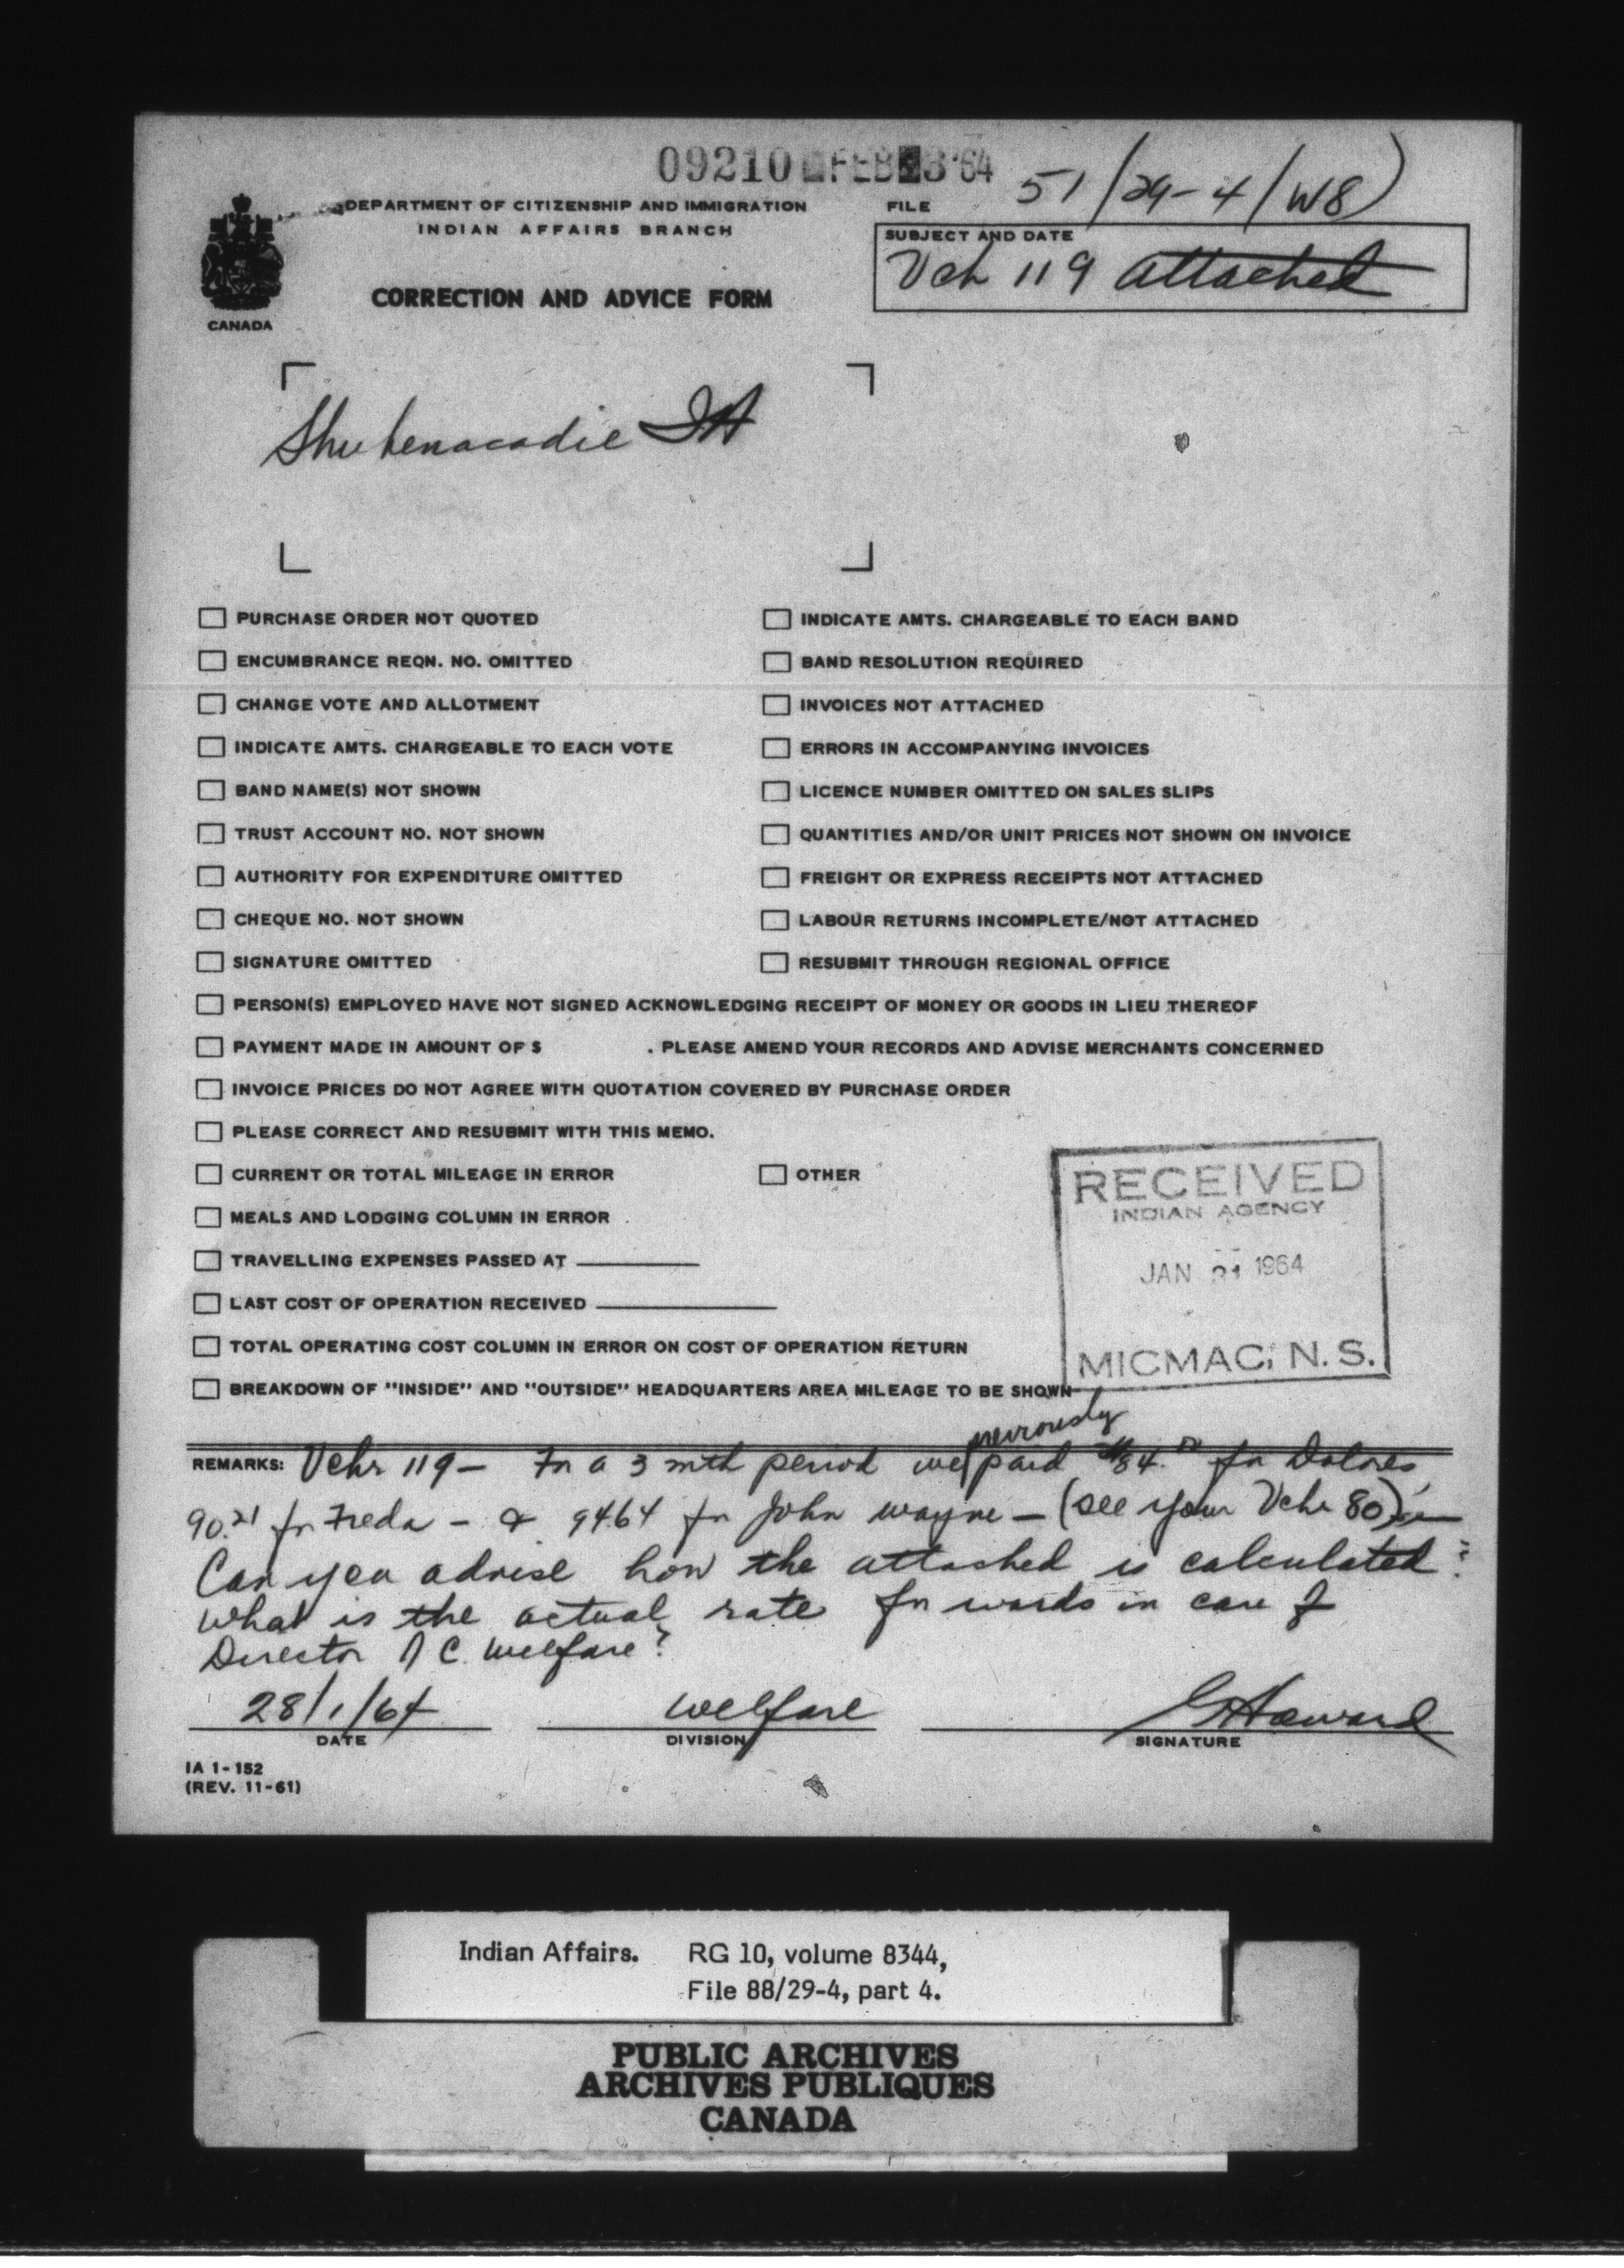 09210 FEB 3 '64
51/29-4/W8
DEPARTMENT OF CITIZENSHIP AND IMMIGRATION
INDIAN AFFAIRS BRANCH
CORRECTION AND ADVICE FORM
CANADA
FILE
SUBJECT AND DATE
Vch 119 attached
Shubenacadie IA
PURCHASE ORDER NOT QUOTED
INDICATE AMTS. CHARGEABLE TO EACH BAND
ENCUMBRANCE REQN. NO. OMITTED
BAND RESOLUTION REQUIRED
CHANGE VOTE AND ALLOTMENT
INVOICES NOT ATTACHED
INDICATE AMTS. CHARGEABLE TO EACH VOTE
ERRORS IN ACCOMPANYING INVOICES
BAND NAME(S) NOT SHOWN
LICENCE NUMBER OMITTED ON SALES SLIPS
TRUST ACCOUNT NO. NOT SHOWN
QUANTITIES AND/OR UNIT PRICES NOT SHOWN ON INVOICE
AUTHORITY FOR EXPENDITURE OMITTED
FREIGHT OR EXPRESS RECEIPTS NOT ATTACHED
CHEQUE NO. NOT SHOWN
LABOUR RETURNS INCOMPLETE/NOT ATTACHED
SIGNATURE OMITTED
RESUBMIT THROUGH REGIONAL OFFICE
PERSON(S) EMPLOYED HAVE NOT SIGNED ACKNOWLEDGING RECEIPT OF MONEY OR GOODS IN LIEU THEREOF
PAYMENT MADE IN AMOUNT OF $ . PLEASE AMEND YOUR RECORDS AND ADVISE MERCHANTS CONCERNED
INVOICE PRICES DO NOT AGREE WITH QUOTATION COVERED BY PURCHASE ORDER
PLEASE CORRECT AND RESUBMIT WITH THIS MEMO.
CURRENT OR TOTAL MILEAGE IN ERROR
OTHER
MEALS AND LODGING COLUMN IN ERROR
TRAVELLING EXPENSES PASSED AT
LAST COST OF OPERATION RECEIVED
TOTAL OPERATING COST COLUMN IN ERROR ON COST OF OPERATION RETURN
BREAKDOWN OF "INSIDE" AND "OUTSIDE" HEADQUARTERS AREA MILEAGE TO BE SHOWN
RECEIVED
INDIAN AGENCY
JAN 31 1964
MICMAC, N.S.
previously
REMARKS: Vchr 119 - For a 3 mth period we paid $84.00 for Dolores
90.21 for Freda - & 94.64 for John Wayne - (see your Vchr 80)
Can you advise how the attached is calculated?
What is the actual rate for wards in care of
Director C. Welfare?
28/1/64
welfare
G Howard
DATE
DIVISION
SIGNATURE
IA 1-152
(REV. 11-61)
Indian Affairs. RG 10, volume 8344,
File 88/29-4, part 4.
PUBLIC ARCHIVES
ARCHIVES PUBLIQUES
CANADA